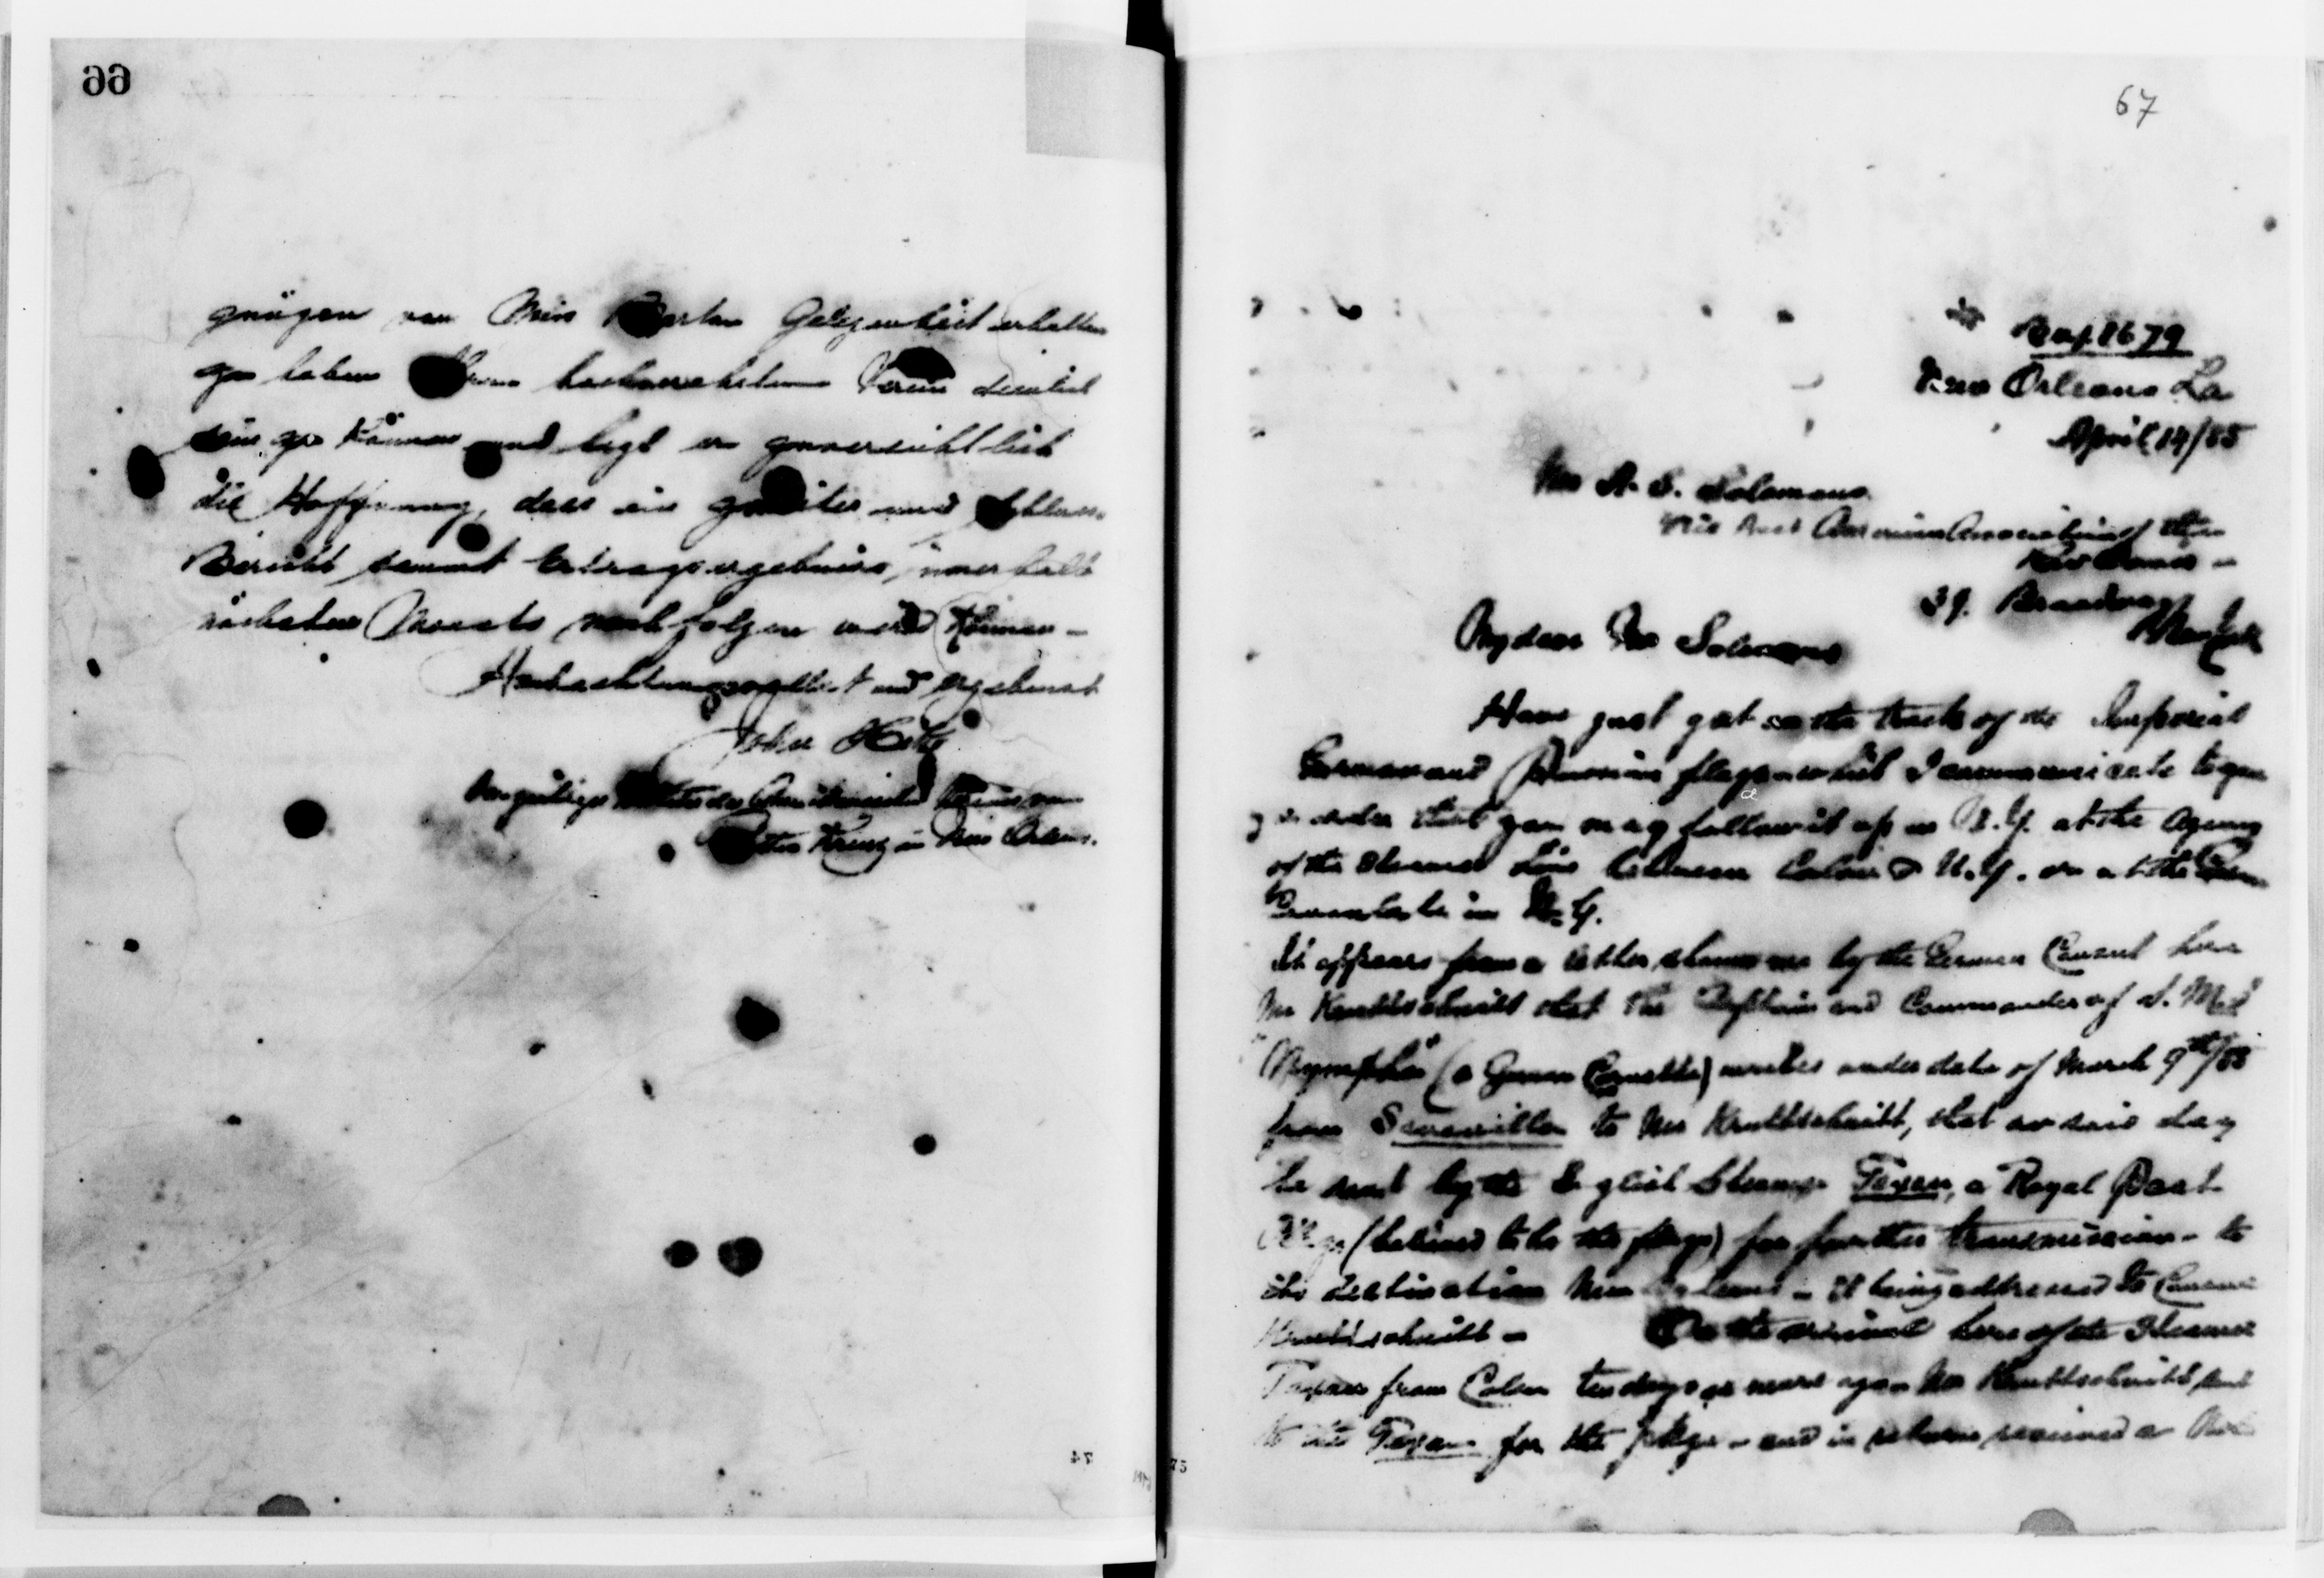 66
gnügen von Miss Barton Gelegenheit erhalten
zu haben Ihrem Verein dienlich
sein zu können und hegt er zuversichtlich
die Hoffnung, dass ein zweiter und Schluss-
Bericht sammt innerhalb
nächsten Monats nachfolgen wird können -
Hochachtungsvollst und ergebenst
John
des Amerikanischen Vereins vom
Rothen Kreuz in New Orleans.
74
67
Box 1679
New Orleans La
April 14/85
Mr A. S. Solomons
Vice Pres American Association of the
Red Cross -
Broadway
New York
My dear Mr Solomons
Have just got on the track of the Imperial
German and flags which I communicate to you
in order that you may follow it up in N.Y. at the Agency
of the Steamer Line between Colon & N.Y. or at the
Consulate in N.Y.
It appears from a letter shown me by the German Consul here
Mr Kruttschnitt that the Captain and Commander of S. M. S
"Nymphe" (a German Corvette) writes under date of March 9th/85
from Savanilla to Mr Kruttschnitt, that on said day
he sent by the English Steamer Texan, a Royal Post
Pkge (believed to be the flags) for further transmission - to
its destination New Orleans - it being addressed to Consul
Kruttschnitt - On the arrival here of the Steamer
Texan from Colon ten days or more ago - Mr Kruttschnitt sent
to the Texan for the pkge - and in return received a
75